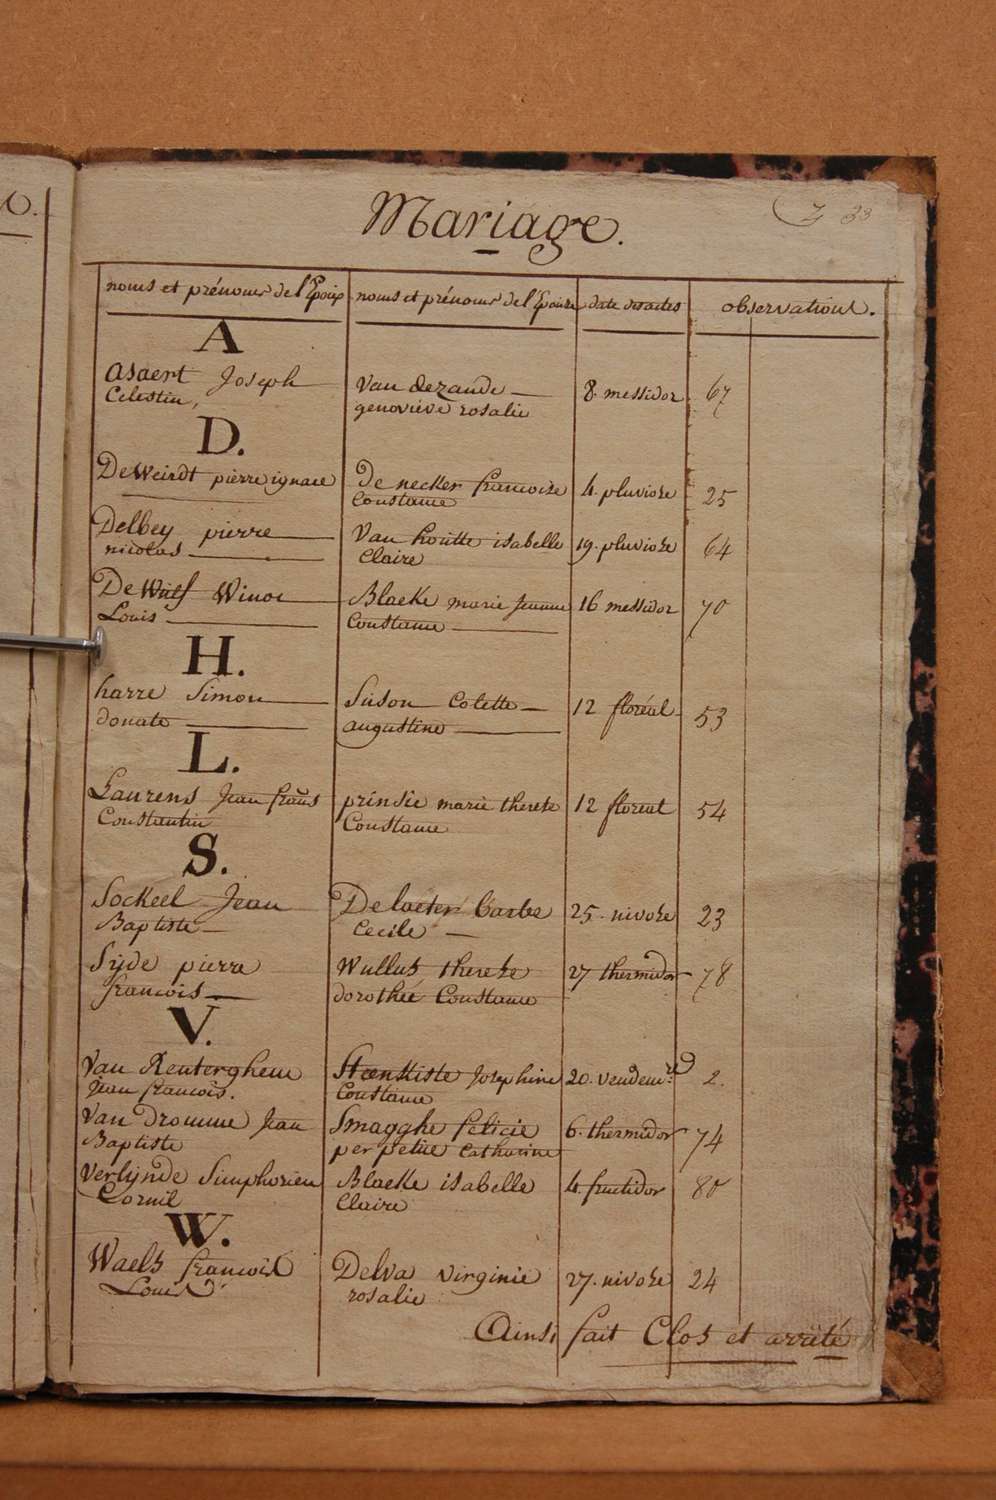 Mariage.
33
noms et prénoms de l'Epoux noms et prénoms de l'Epouse date des actes observations.
A
Asaert Joseph Van dezande 8. messidor 67
Celestin, genoviéve rosalie
D.
De Weirdt pierre ignace De necker francoise 4. pluviose 25
Constance
Delbey pierre Van houtte isabelle 19. pluviose 64
nicolas Claire
De Wulf Winoc Blaeke marie Jeanne 16 messidor 70
Louis Constance
H.
harre Simon Suson Colette 12 floréal 53
donate augustine
L.
Laurens Jean frans prinsie marie therese 12 floreal 54
Constantin Constance
S.
Sockeel Jean Delaeter barbe 25. nivose 23
Baptiste Cecile
Syde pierre Wullus therese 27 thermidor 78
francois dorothée Constance
V.
Van Renterghem Staenkiste Josephine 20. vendem.re 2.
Jean francois. Constance
Van Dromme Jean Smagghe felicie 6. thermidor 74
Baptiste perpetue Catharine
Verlynde Simphorien Blaeke isabelle 4. fructidor 80
Cornil Claire
W.
Waels francois Delva virginie 27. nivose 24
Louis rosalie
Ainsi fait Clos et arrêté